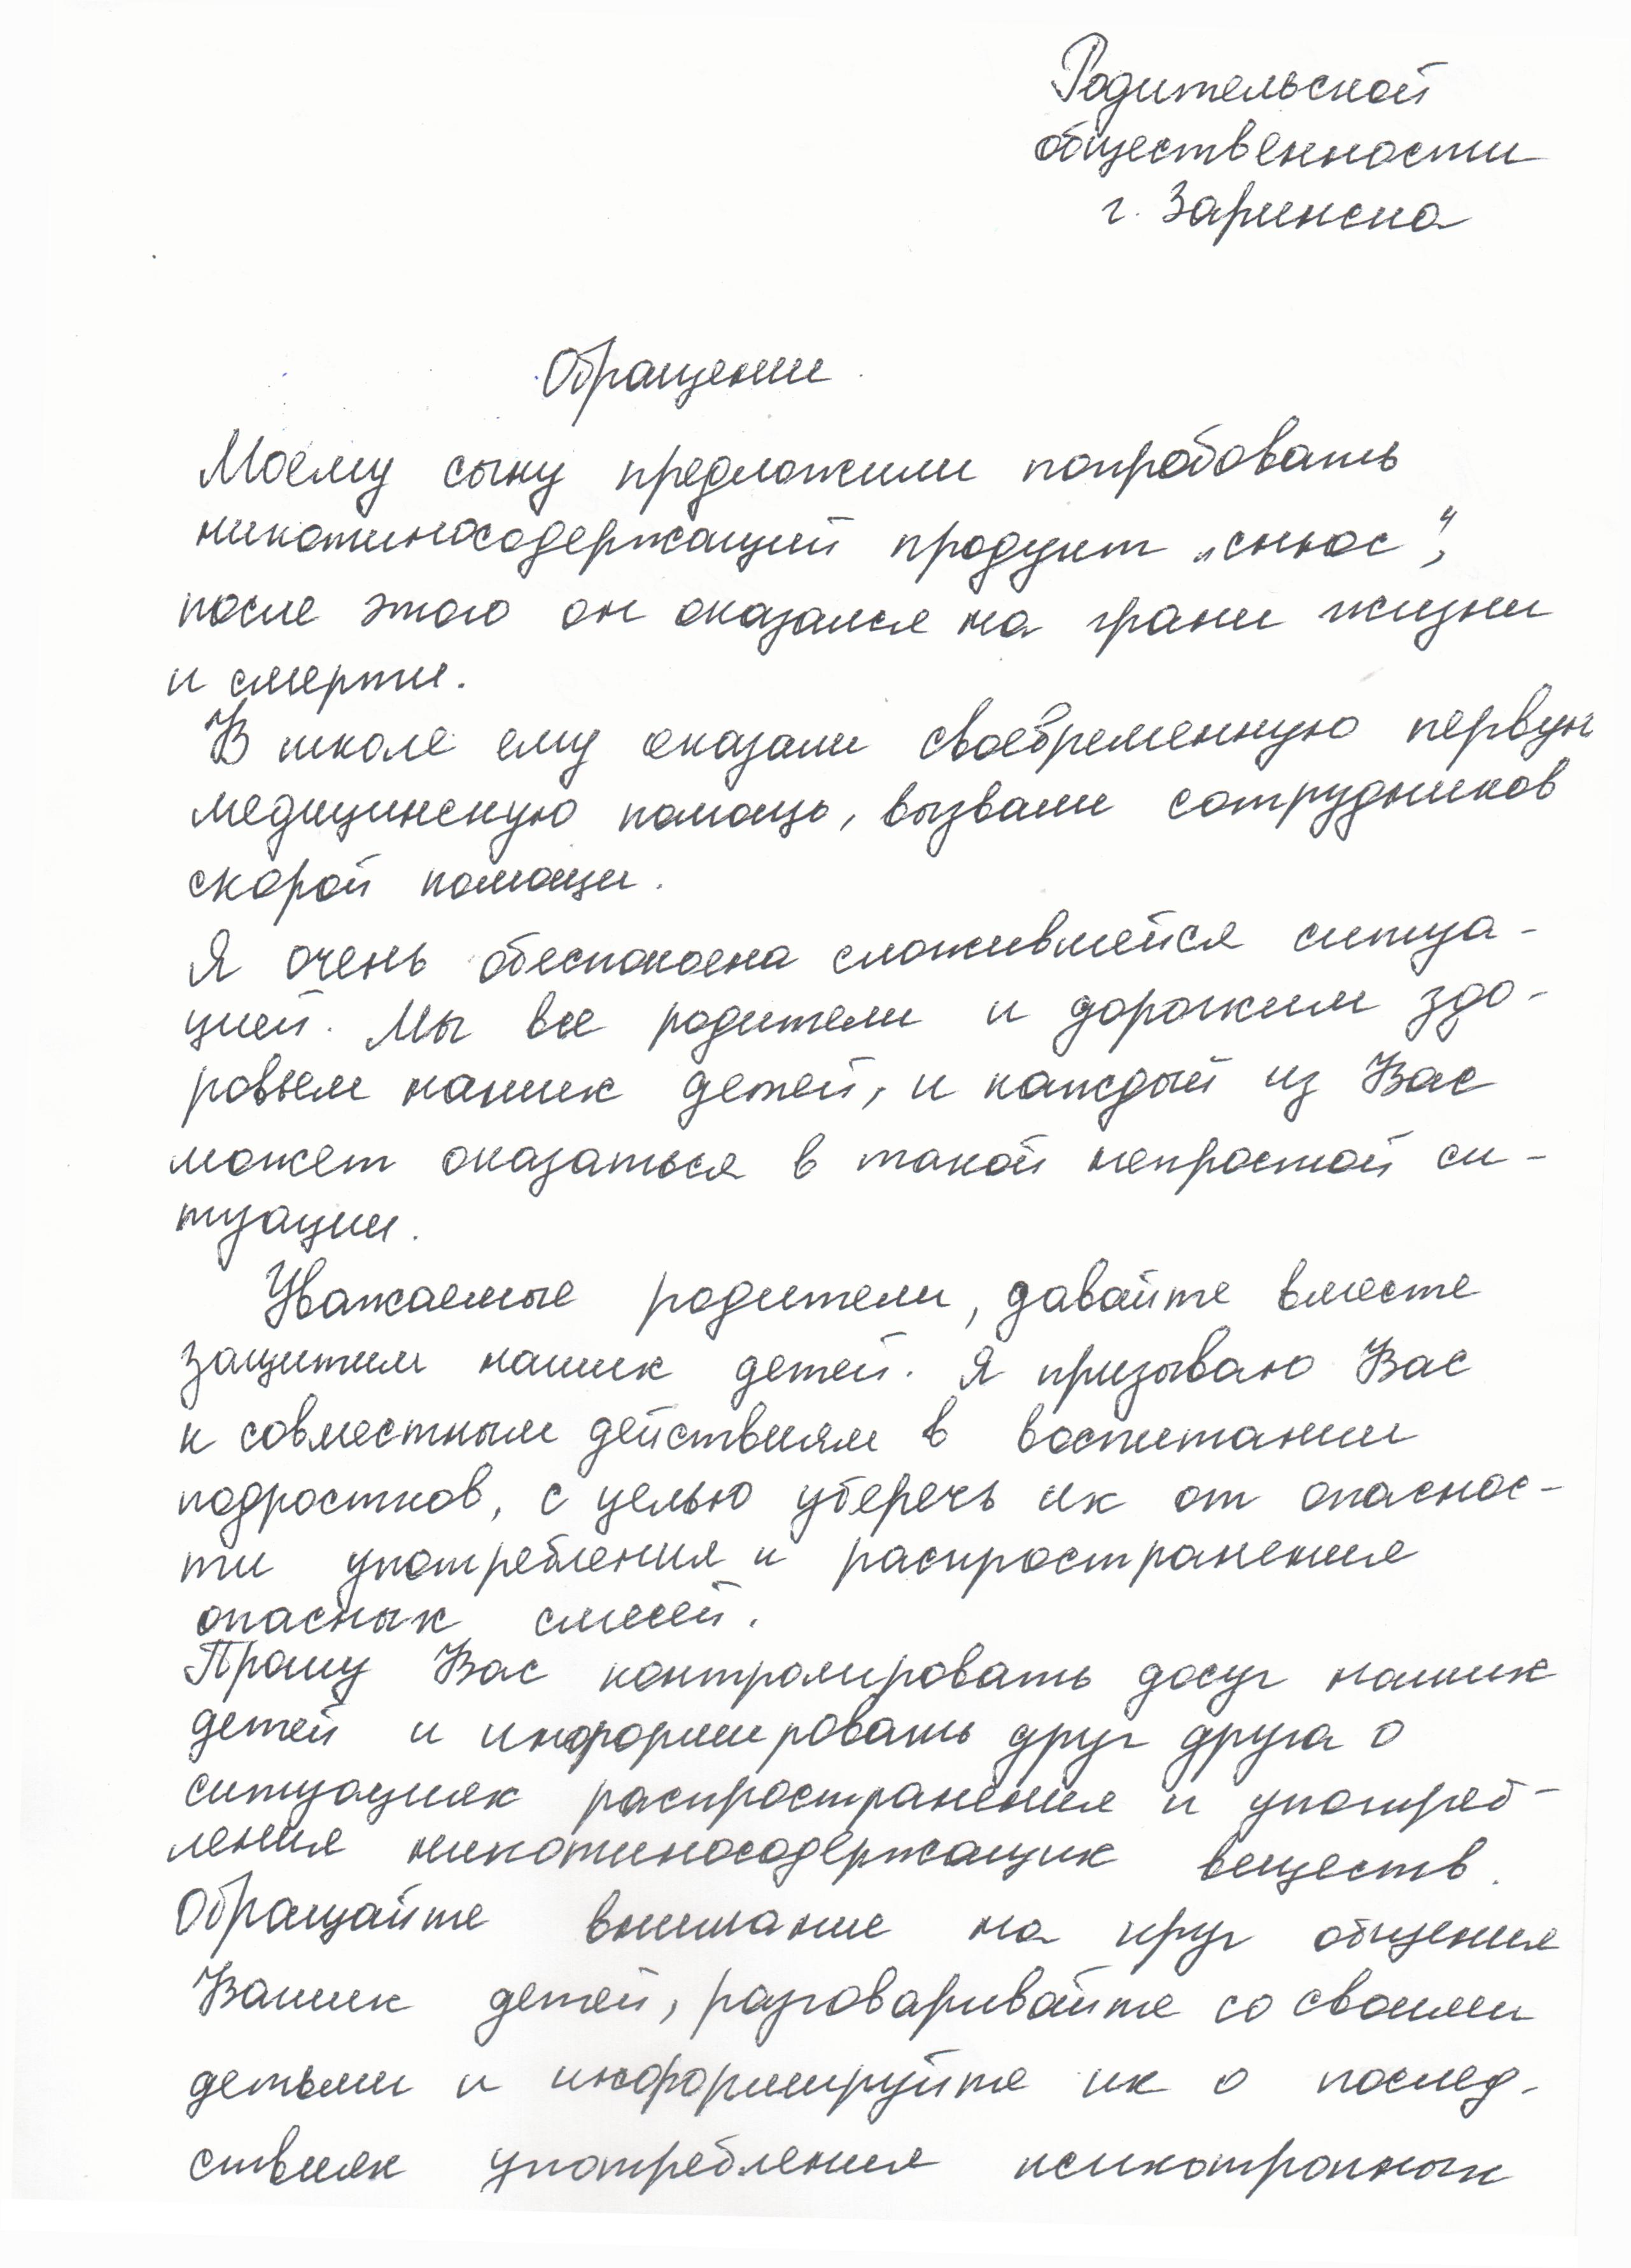 Родительской
общественности
г. Заринска
Обращение.
Моему сыну предложили попробовать
никотиносодержащий продукт „снюс“,
после этого он оказался на грани жизни
и смерти.
В школе ему оказали своевременную первую
медицинскую помощь, вызвали сотрудников
скорой помощи.
Я очень обеспокоена сложившейся ситуа-
цией. Мы все родители и дорожим здо-
ровьем наших детей, и каждый из Вас
может оказаться в такой непростой си-
туации.
Уважаемые родители, давайте вместе
защитим наших детей. Я призываю Вас
к совместным действиям в воспитании
подростков, с целью уберечь их от опаснос-
ти употребления и распространения
опасных смесей.
Прошу Вас контролировать досуг наших
детей и информировать друг друга о
ситуациях распространения и употреб-
ления никотиносодержащих веществ.
Обращайте внимание на круг общения
Ваших детей, разговаривайте со своими
детьми и информируйте их о послед-
ствиях употребления психотропных